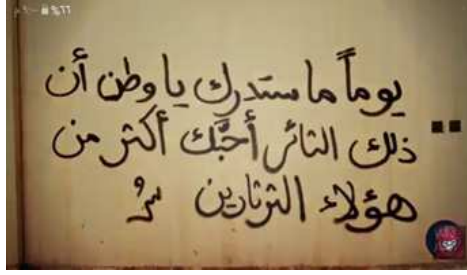 ٦٦%
يوماً ما ستدرك يا وطن أن
ذلك الثائر أحبَّك أكثر من
هؤلاء الثرثارين